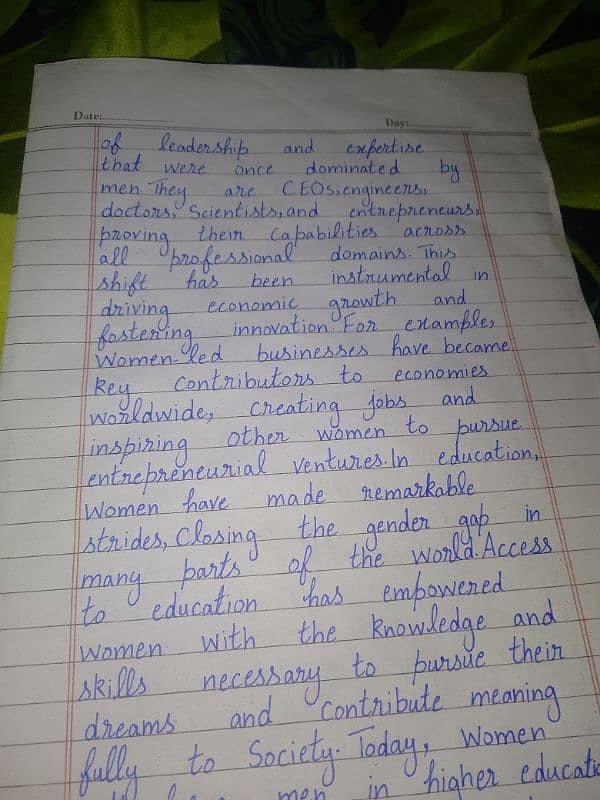 Date: Day:
of leadership and expertise
that were once dominated by
men. They are CEOs, engineers,
doctors, Scientists, and entrepreneurs,
proving their capabilities across
all professional domains. This
shift has been instrumental in
driving economic growth and
fostering innovation. For example,
Women-led businesses have became
key contributors to economies
worldwide, creating jobs and
inspiring other women to pursue
entrepreneurial ventures. In education,
Women have made remarkable
strides, Closing the gender gap in
many parts of the world. Access
to education has empowered
women with the knowledge and
skills necessary to pursue their
dreams and contribute meaning
fully to Society. Today, Women
men in higher educatio